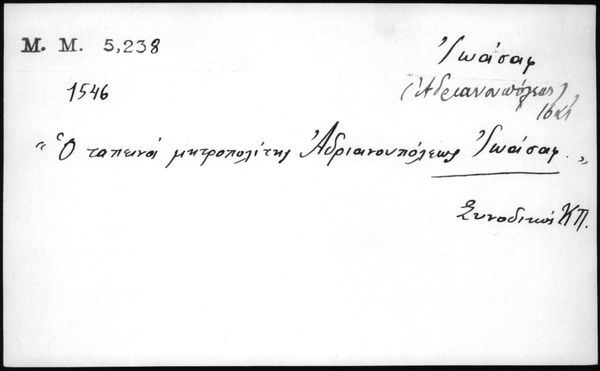 M. M. 5,238
Ἰωάσαφ
1546
(Ἀδριανουπόλεως)
"Ὁ ταπεινὸς μητροπολίτης Ἀδριανουπόλεως Ἰωάσαφ."
Συνοδικοὶ ΚΠ.